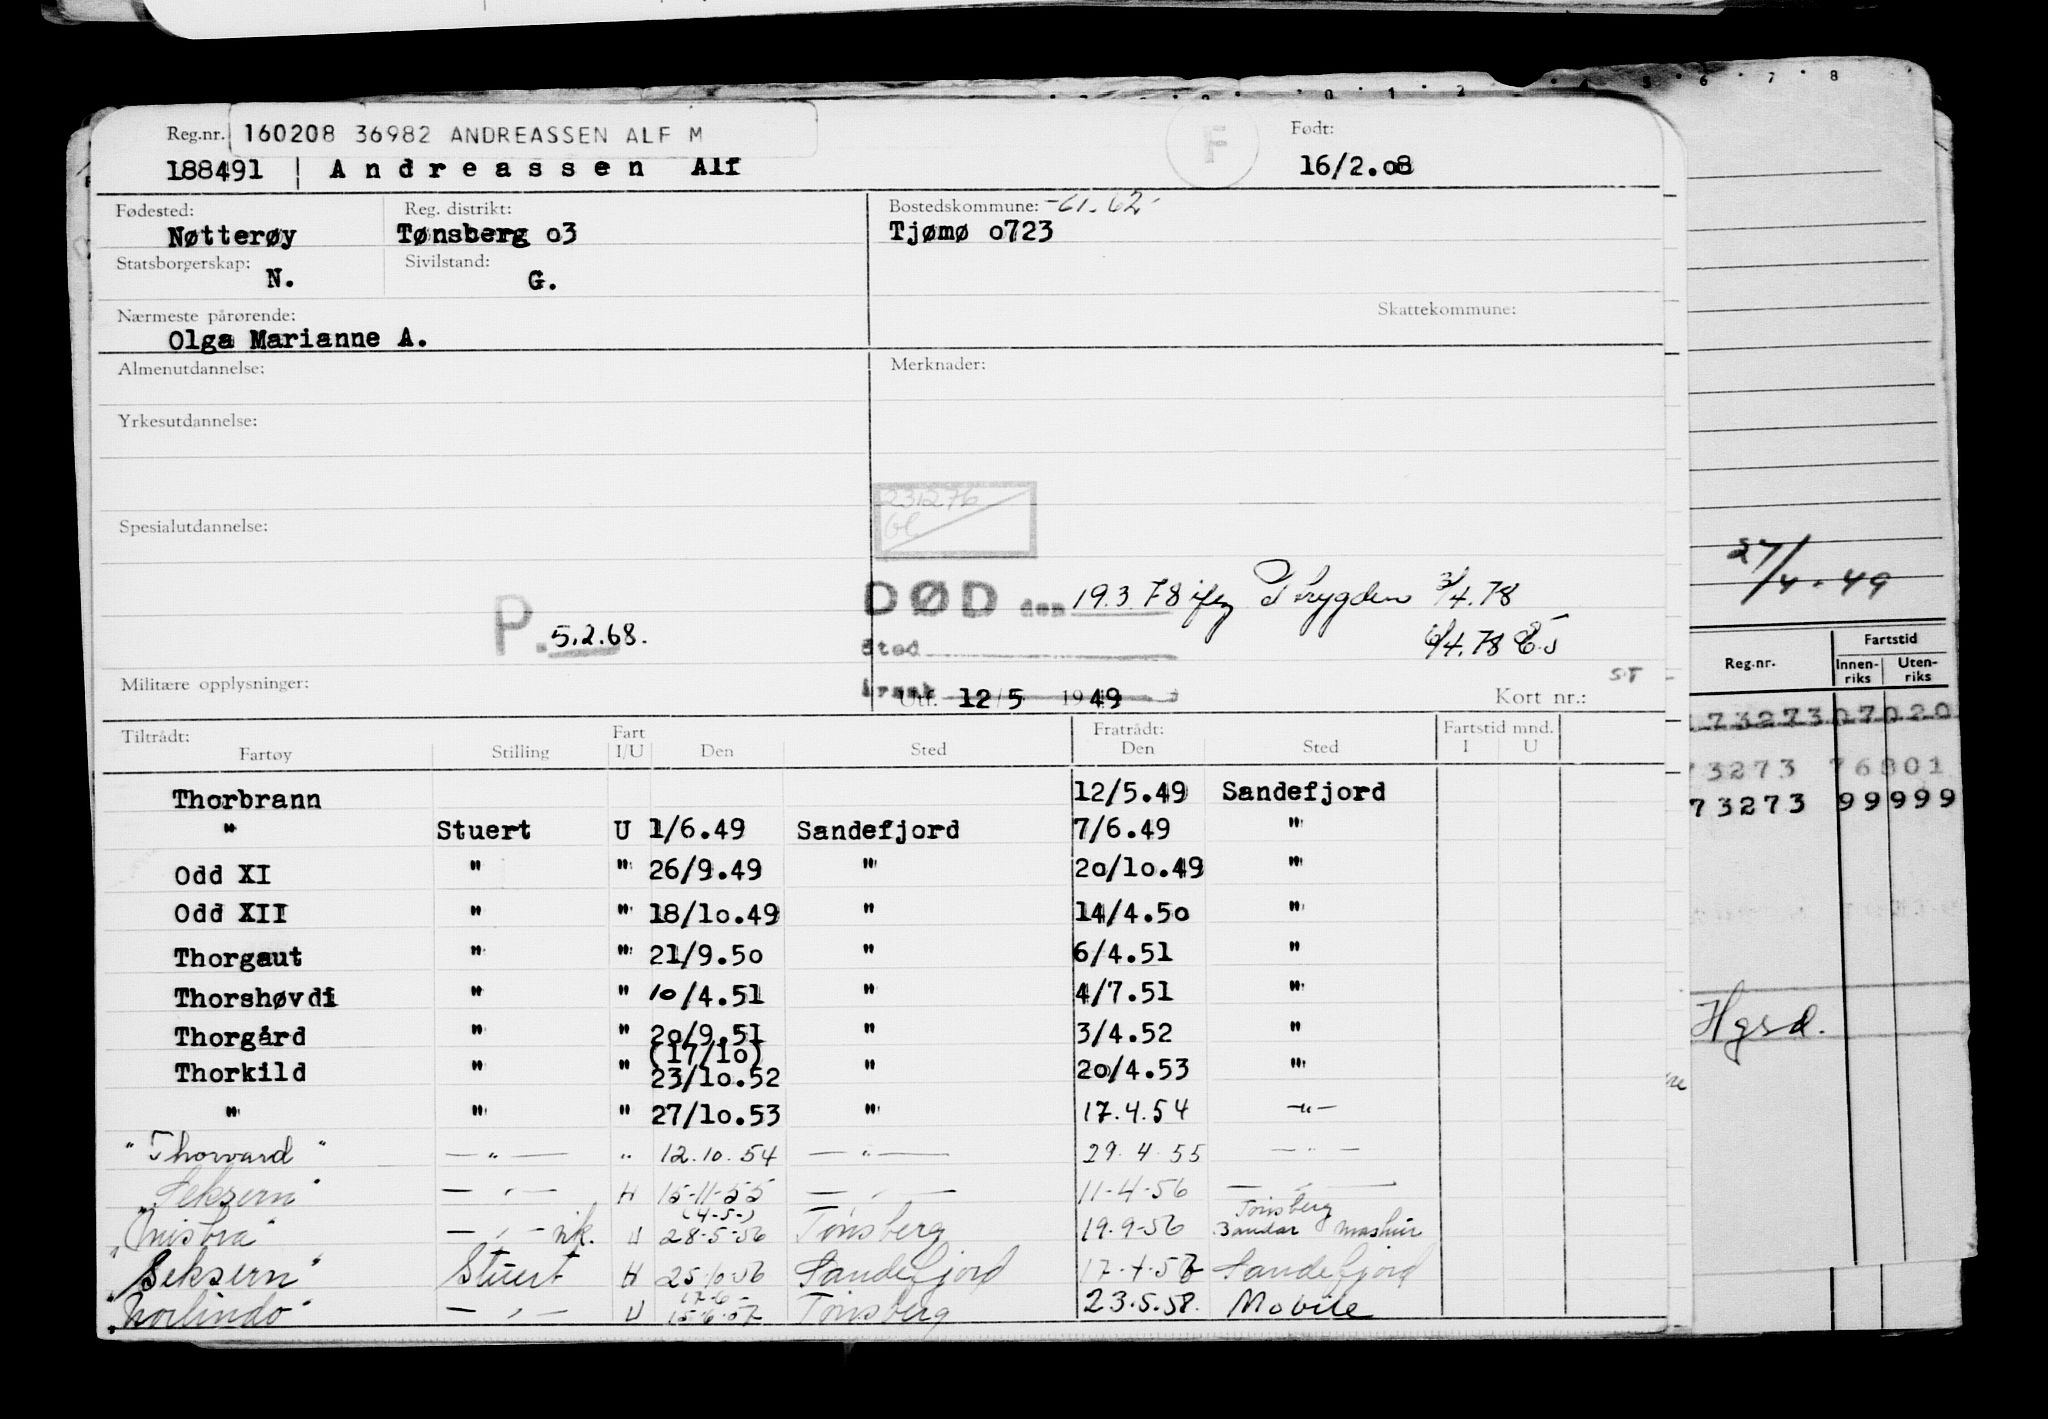 Reg.nr. 160208 36982 ANDREASSEN ALF M F Født:
188491 | Andreassen Alf 16/2.08
Fødested: Reg. distrikt: Bostedskommune: -61.62-
Nøtterøy Tønsberg o3 Tjømø o723
Statsborgerskap: Sivilstand:
N. G.
Nærmeste pårørende: Skattekommune:
Olga Marianne A.
Almenutdannelse: Merknader:
Yrkesutdannelse:
231276
Spesialutdannelse:
27/4-49
DØD den 19.3.78 Trygden 3/4.78
P. 5.2.68. 6/4.78
Sted
Militære opplysninger: Årsak Utf. 12/5 1949 Kort nr.: ST
Tiltrådt: Fart Fratrådt: Fartstid mnd.
Fartøy Stilling I/U Den Sted Den Sted I U
Thorbrann 12/5.49 Sandefjord
" Stuert U 1/6.49 Sandefjord 7/6.49 "
Odd XI " " 26/9.49 " 20/10.49 "
Odd XII " " 18/10.49 " 14/4.50 "
Thorgaut " " 21/9.50 " 6/4.51 "
Thorshøvdi " " 10/4.51 " 4/7.51 "
Thorgård " " 20/9.51 " 3/4.52 "
(17/10)
Thorkild " " 23/10.52 " 20/4.53 "
" " " 27/10.53 " 17.4.54 -"-
"Thorvard" -"- " 12.10.54 -"- 29.4.55 -"-
"Seksern" -"- H 15-11-55 -"- 11-4-56 -"-
(4-5-) Tønsberg
-"- vik. U 28-5-56 Tønsberg 19-9-56
"Seksern" Stuert H 25-10-56 Sandefjord Sandefjord
"Norlindo" -"- U 15-6-57 Tønsberg 23.5.58. Mobile
Fartstid
Reg.nr. Innen-riks Uten-riks
73273 07020
73273 76801
73273 99999
Hgsd.